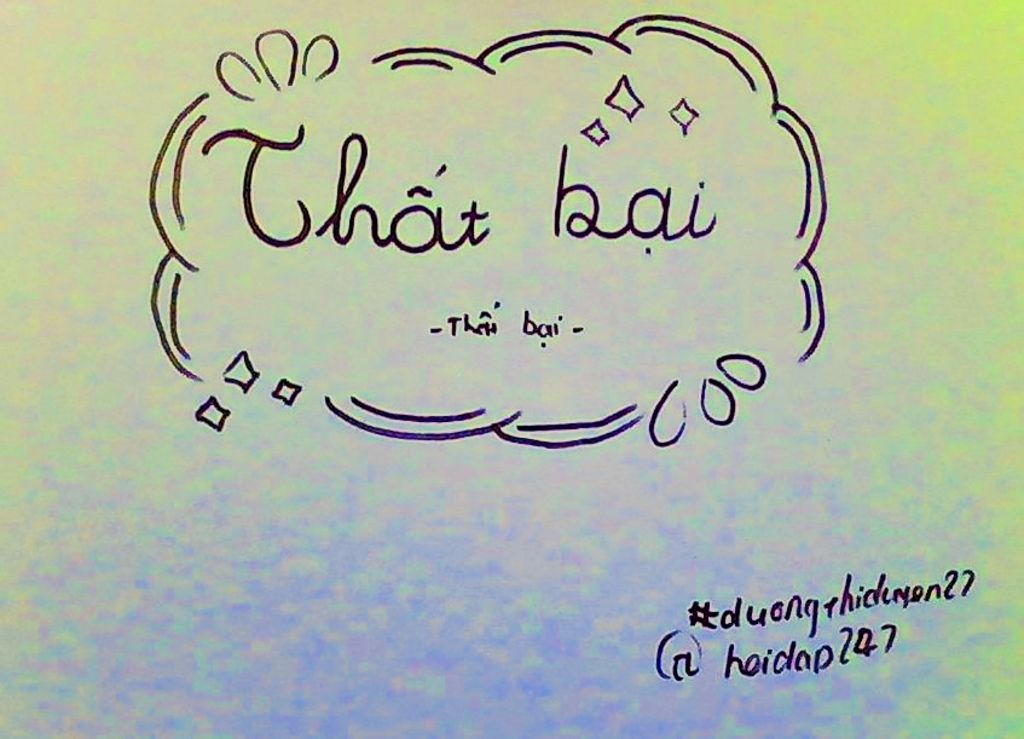 Thất bại
- Thất bại -
#duongthiduyen27
@ hoidap247